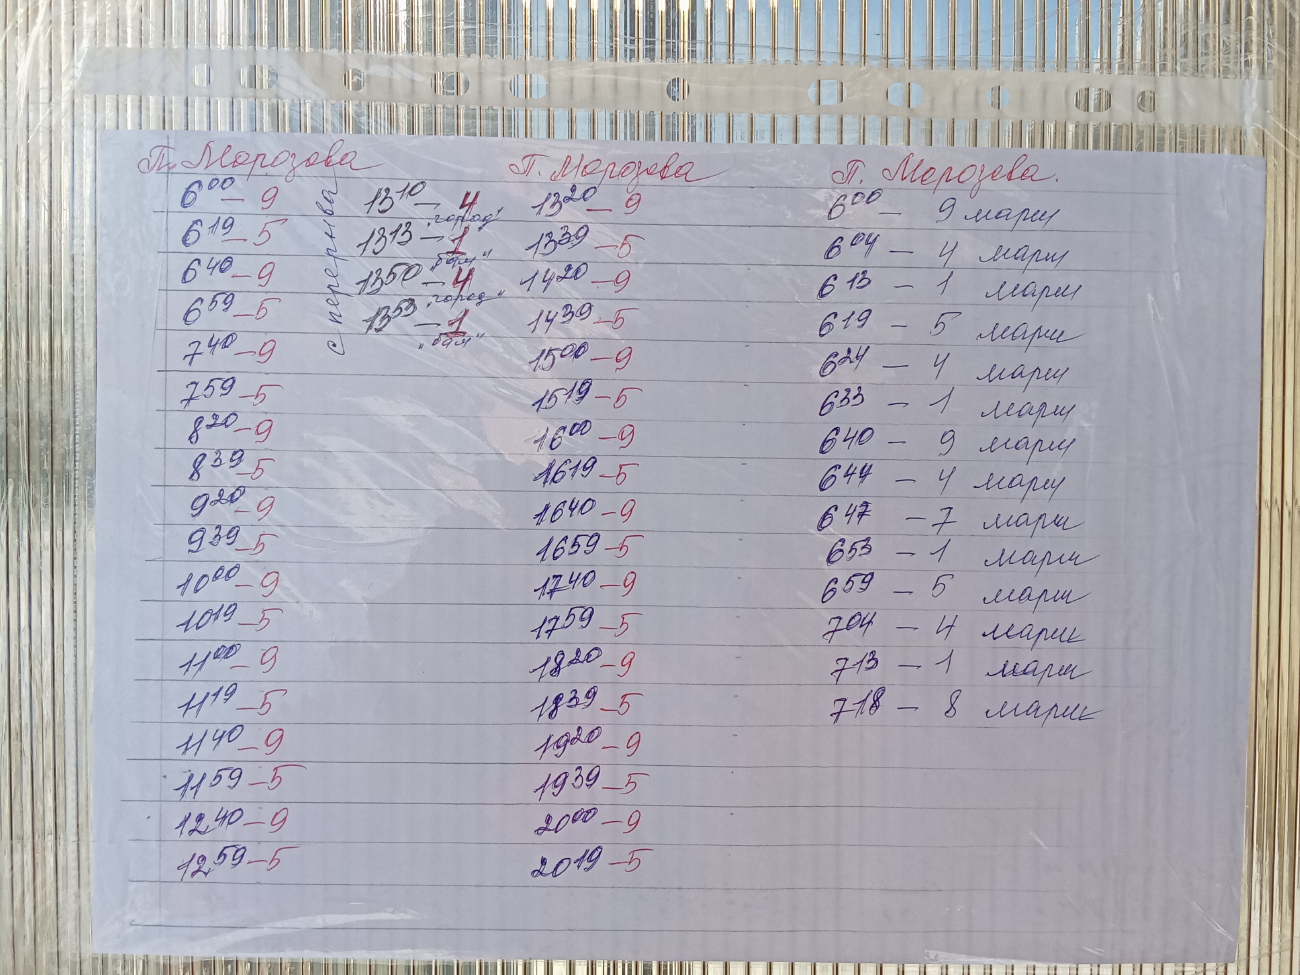 П. Морозова
6 00 – 9
6 19 – 5
6 40 – 9
6 59 – 5
7 40 – 9
7 59 – 5
8 20 – 9
8 39 – 5
9 20 – 9
9 39 – 5
10 00 – 9
10 19 – 5
11 00 – 9
11 19 – 5
11 40 – 9
11 59 – 5
12 40 – 9
12 59 – 5
с перерыва
13 10 – 4
"город"
13 13 – 1
"бам"
13 50 – 4
"город"
13 53 – 1
"бам"
П. Морозова
13 20 – 9
13 39 – 5
14 20 – 9
14 39 – 5
15 00 – 9
15 19 – 5
16 00 – 9
16 19 – 5
16 40 – 9
16 59 – 5
17 40 – 9
17 59 – 5
18 20 – 9
18 39 – 5
19 20 – 9
19 39 – 5
20 00 – 9
20 19 – 5
П. Морозова.
6 00 – 9 марш
6 04 – 4 марш
6 13 – 1 марш
6 19 – 5 марш
6 24 – 4 марш
6 33 – 1 марш
6 40 – 9 марш
6 44 – 4 марш
6 47 – 7 марш
6 53 – 1 марш
6 59 – 5 марш
7 04 – 4 марш
7 13 – 1 марш
7 18 – 8 марш